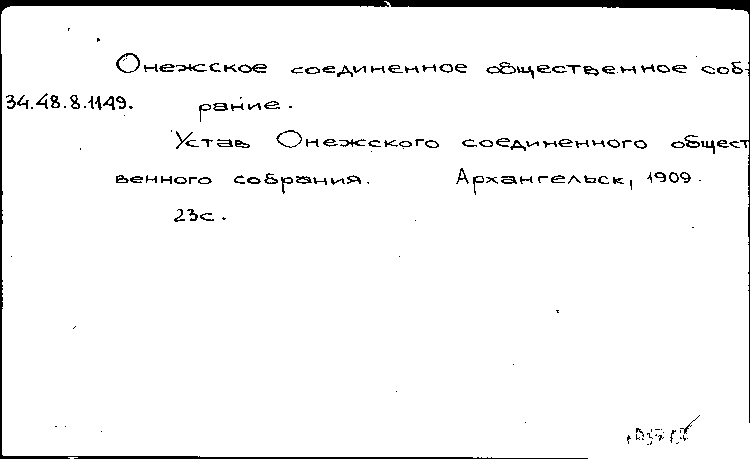 Онежское соединенное общественное соб-
34.48.8.1149. рание.
Устав Онежского соединенного общест
венного собрания. Архангельск, 1909.
23с.